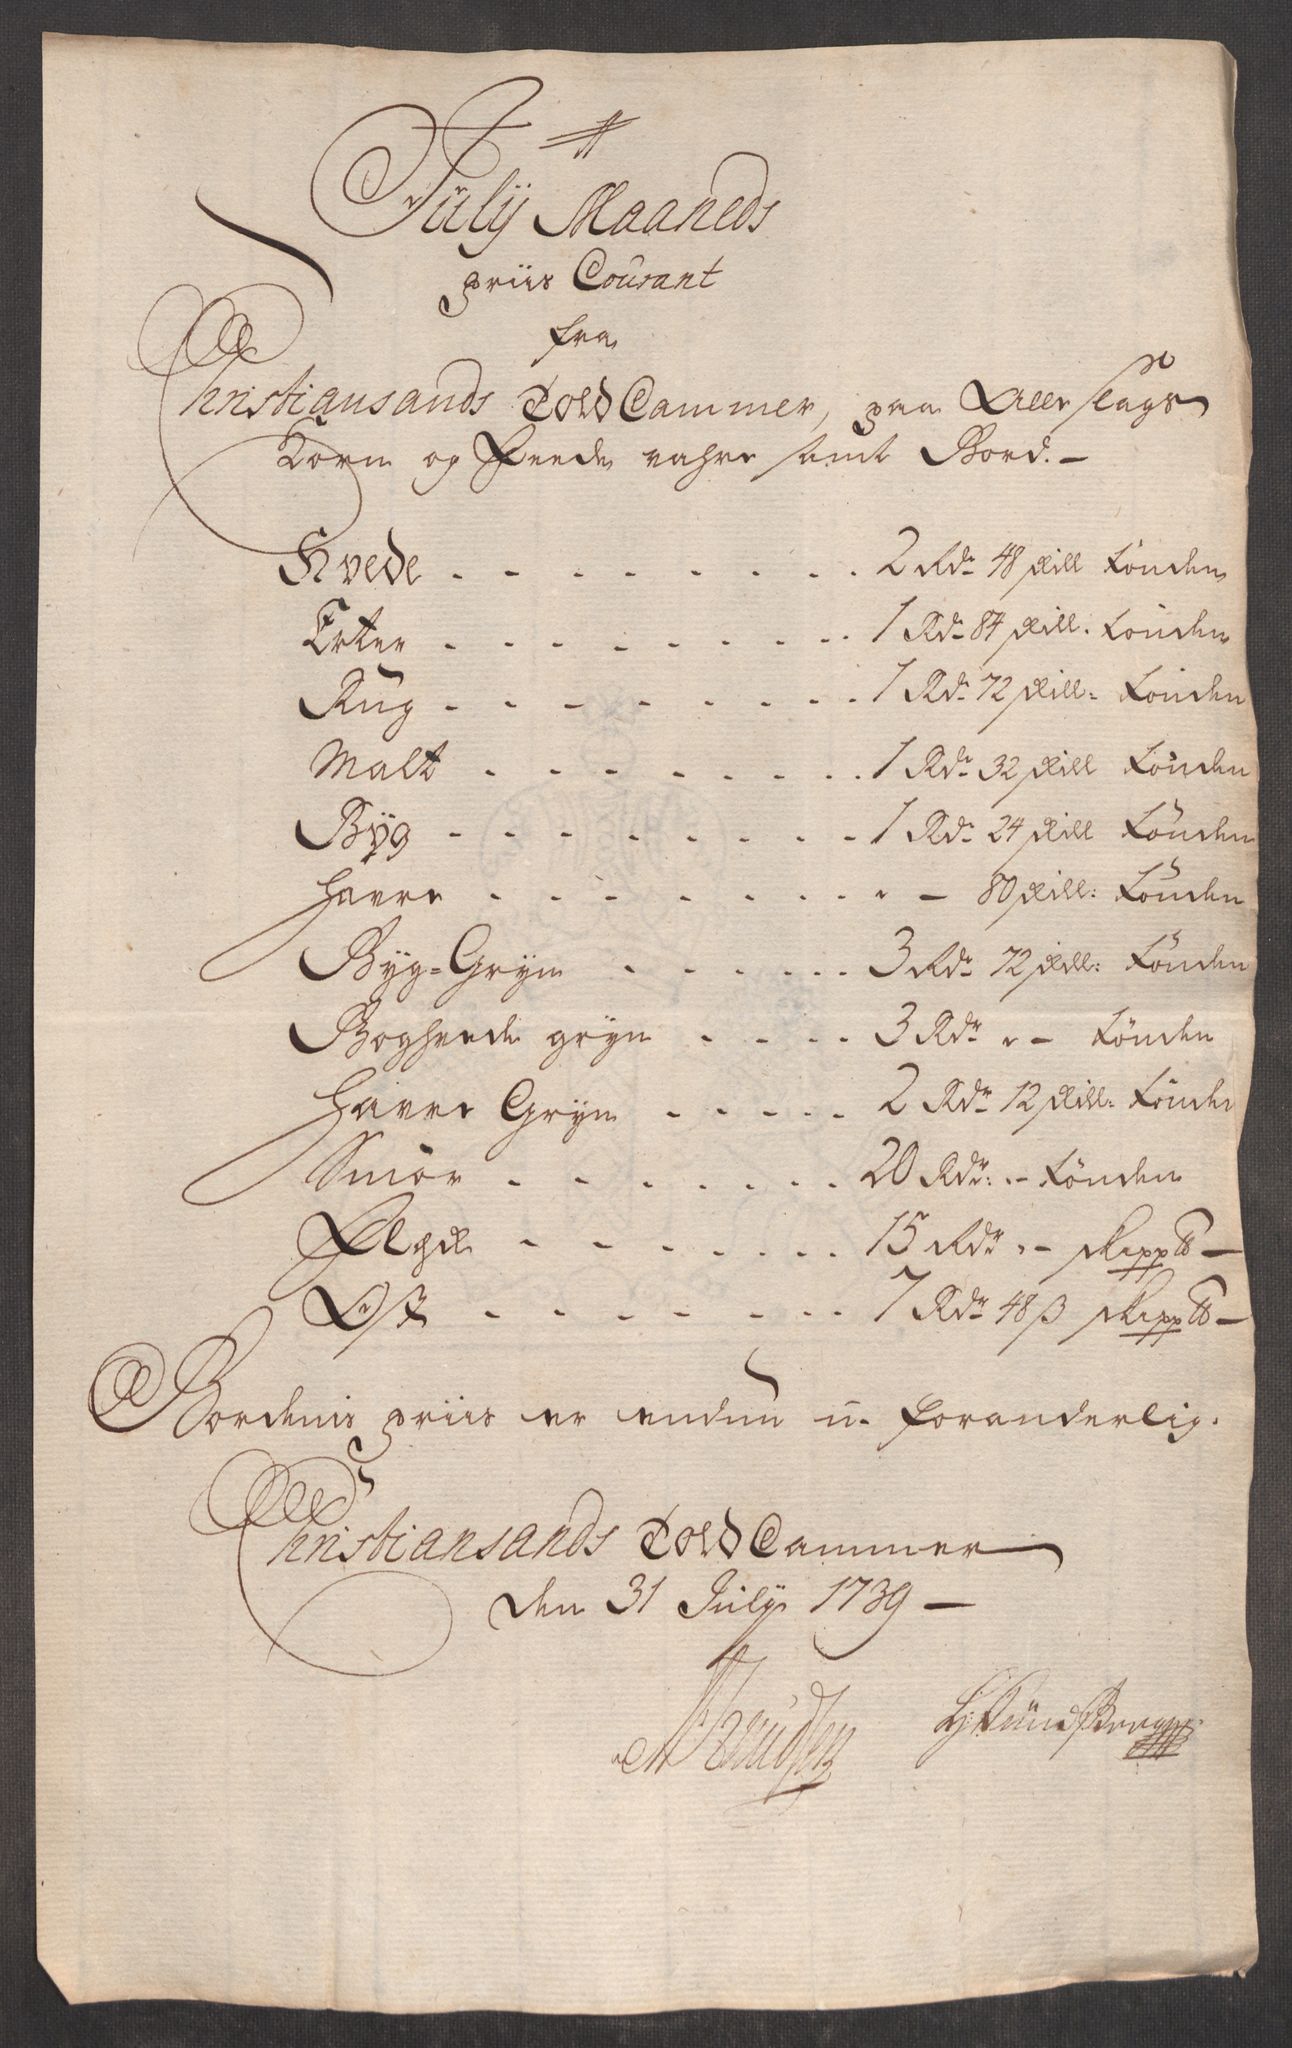 Julij Maaneds
priis Courant
fra
Christiansands Told Cammer, paa Alle slags
Korn og Feede vahre samt Bord. –
Hvede . . . . . . . . 2 Rdr 48 skill Tønden
Erter . . . . . . . . 1 Rdr 84 skill. Tønden
Rug . . . . . . . . 1 Rdr 72 skill: Tønden
Malt . . . . . . . . 1 Rdr 32 skill Tønden
Byg . . . . . . . . 1 Rdr 24 skill Tønden
Havre . . . . . . . . – 80 skill: Tønden
Byg=Gryn . . . . . 3 Rdr 72 skill: Tønden
Boghvede gryn . . . . 3 Rdr – Tønden
Havre Gryn . . . . . 2 Rdr 12 skill: Tønden
Smør . . . . . . . 20 Rdr: – Tønden
Flesk . . . . . . 15 Rdr – skipp℔ –
Ost . . . . . . . 7 Rdr 48 ß skipp℔ –
Bordenis priis er endnu u-foranderlig.
Christiansands Told Cammer
den 31 Julij 1739 –